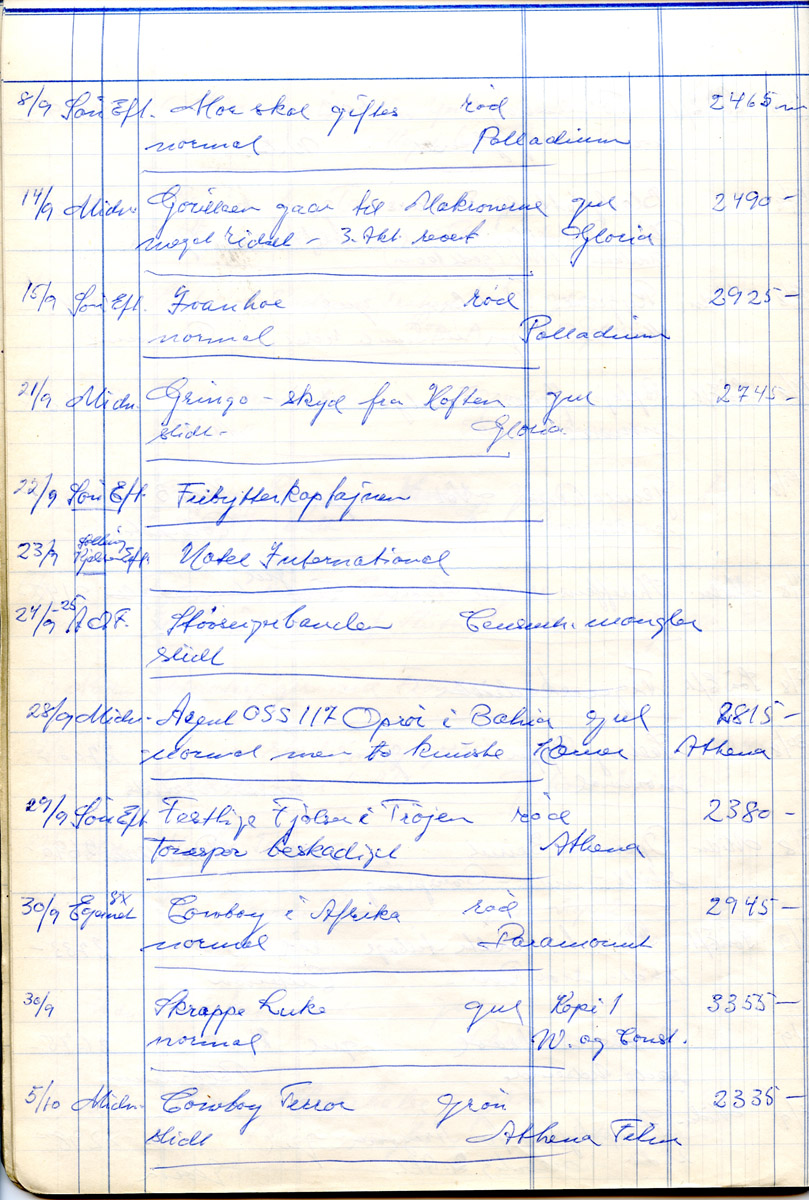 8/9 Søn Eft. Moe skal giftes rød 2465 m
normal Palladium
14/9 Midn. Gorillaen gaar til Makronerne gul 2490 -
noget ridset - 3. Akt. revet Gloria
15/9 Søn Eft. Ivanhoe rød 2925 -
normal Palladium
21/9 Midn. Gringo - skyd fra Hoften gul 2745 -
slidt - Gloria
22/9 Søn Eft. Fribytterkaptajnen
23/9 Eft. Hotel International
24/9-25 AOF. Støvsugerbanden Censurk. mangler
slidt
28/9 Midn. Agent OSS 117 Oprør i Bahia gul 2815 -
normal men to Athena
29/9 Søn Eft Festlige Fjolser i Trøjen rød 2380 -
Tonespor beskadiget Athena
30/9 Egmont 8X Cowboy i Afrika rød 2945 -
normal Paramount
30/9 Skrappe Luke gul Kopi 1 3355 -
normal W. og Const.
5/10 Midn. Cowboy Terror grøn 2335 -
slidt Athena Film